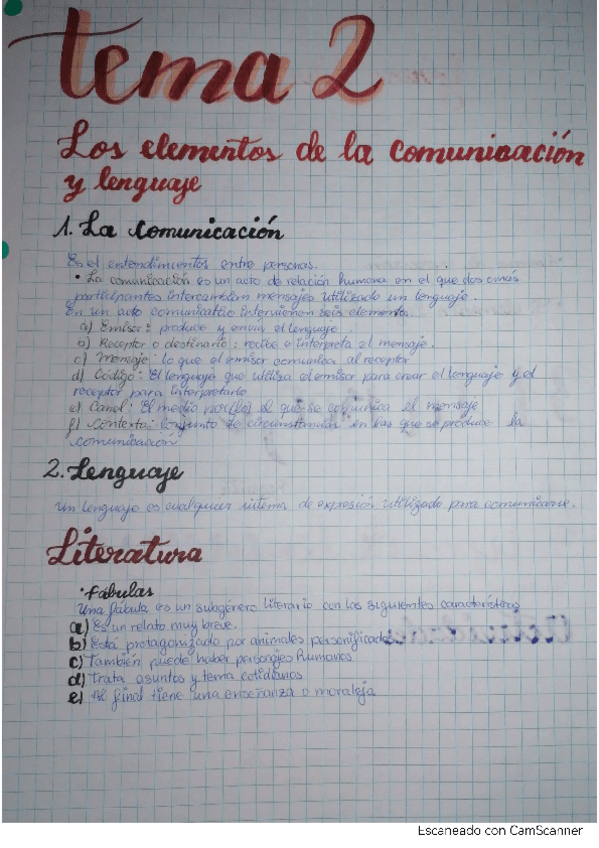 tema 2
Los elementos de la comunicación
y lenguaje
1. La comunicación
Es el entendimientos entre personas.
• La comunicación es un acto de relación humana en el que dos o más
participantes intercambian mensajes utilizado un lenguaje.
En un acto comunicativo intervienen seis elementos.
a) Emisor: produce y envía el lenguaje.
b) Receptor o destinatario: recibe e interpreta el mensaje.
c) Mensaje: lo que el emisor comunica al receptor.
d) Código: El lenguaje que utiliza el emisor para crear el lenguaje y el
receptor para interpretarlo
e) Canal: El medio por el que se comunica el mensaje
f) Contexto: Conjunto de circunstancias en las que se produce la
comunicación
2. Lenguaje
Un lenguaje es cualquier sistema de expresión utilizado para comunicarse.
Literatura
• Fábulas
Una fábula es un subgénero literario con las siguientes características
a) Es un relato muy breve.
b) Está protagonizado por animales personificados
c) También puede haber personajes humanos
d) Trata asuntos y tema cotidianos
e) Al final tiene una enseñanza o moraleja
Escaneado con CamScanner